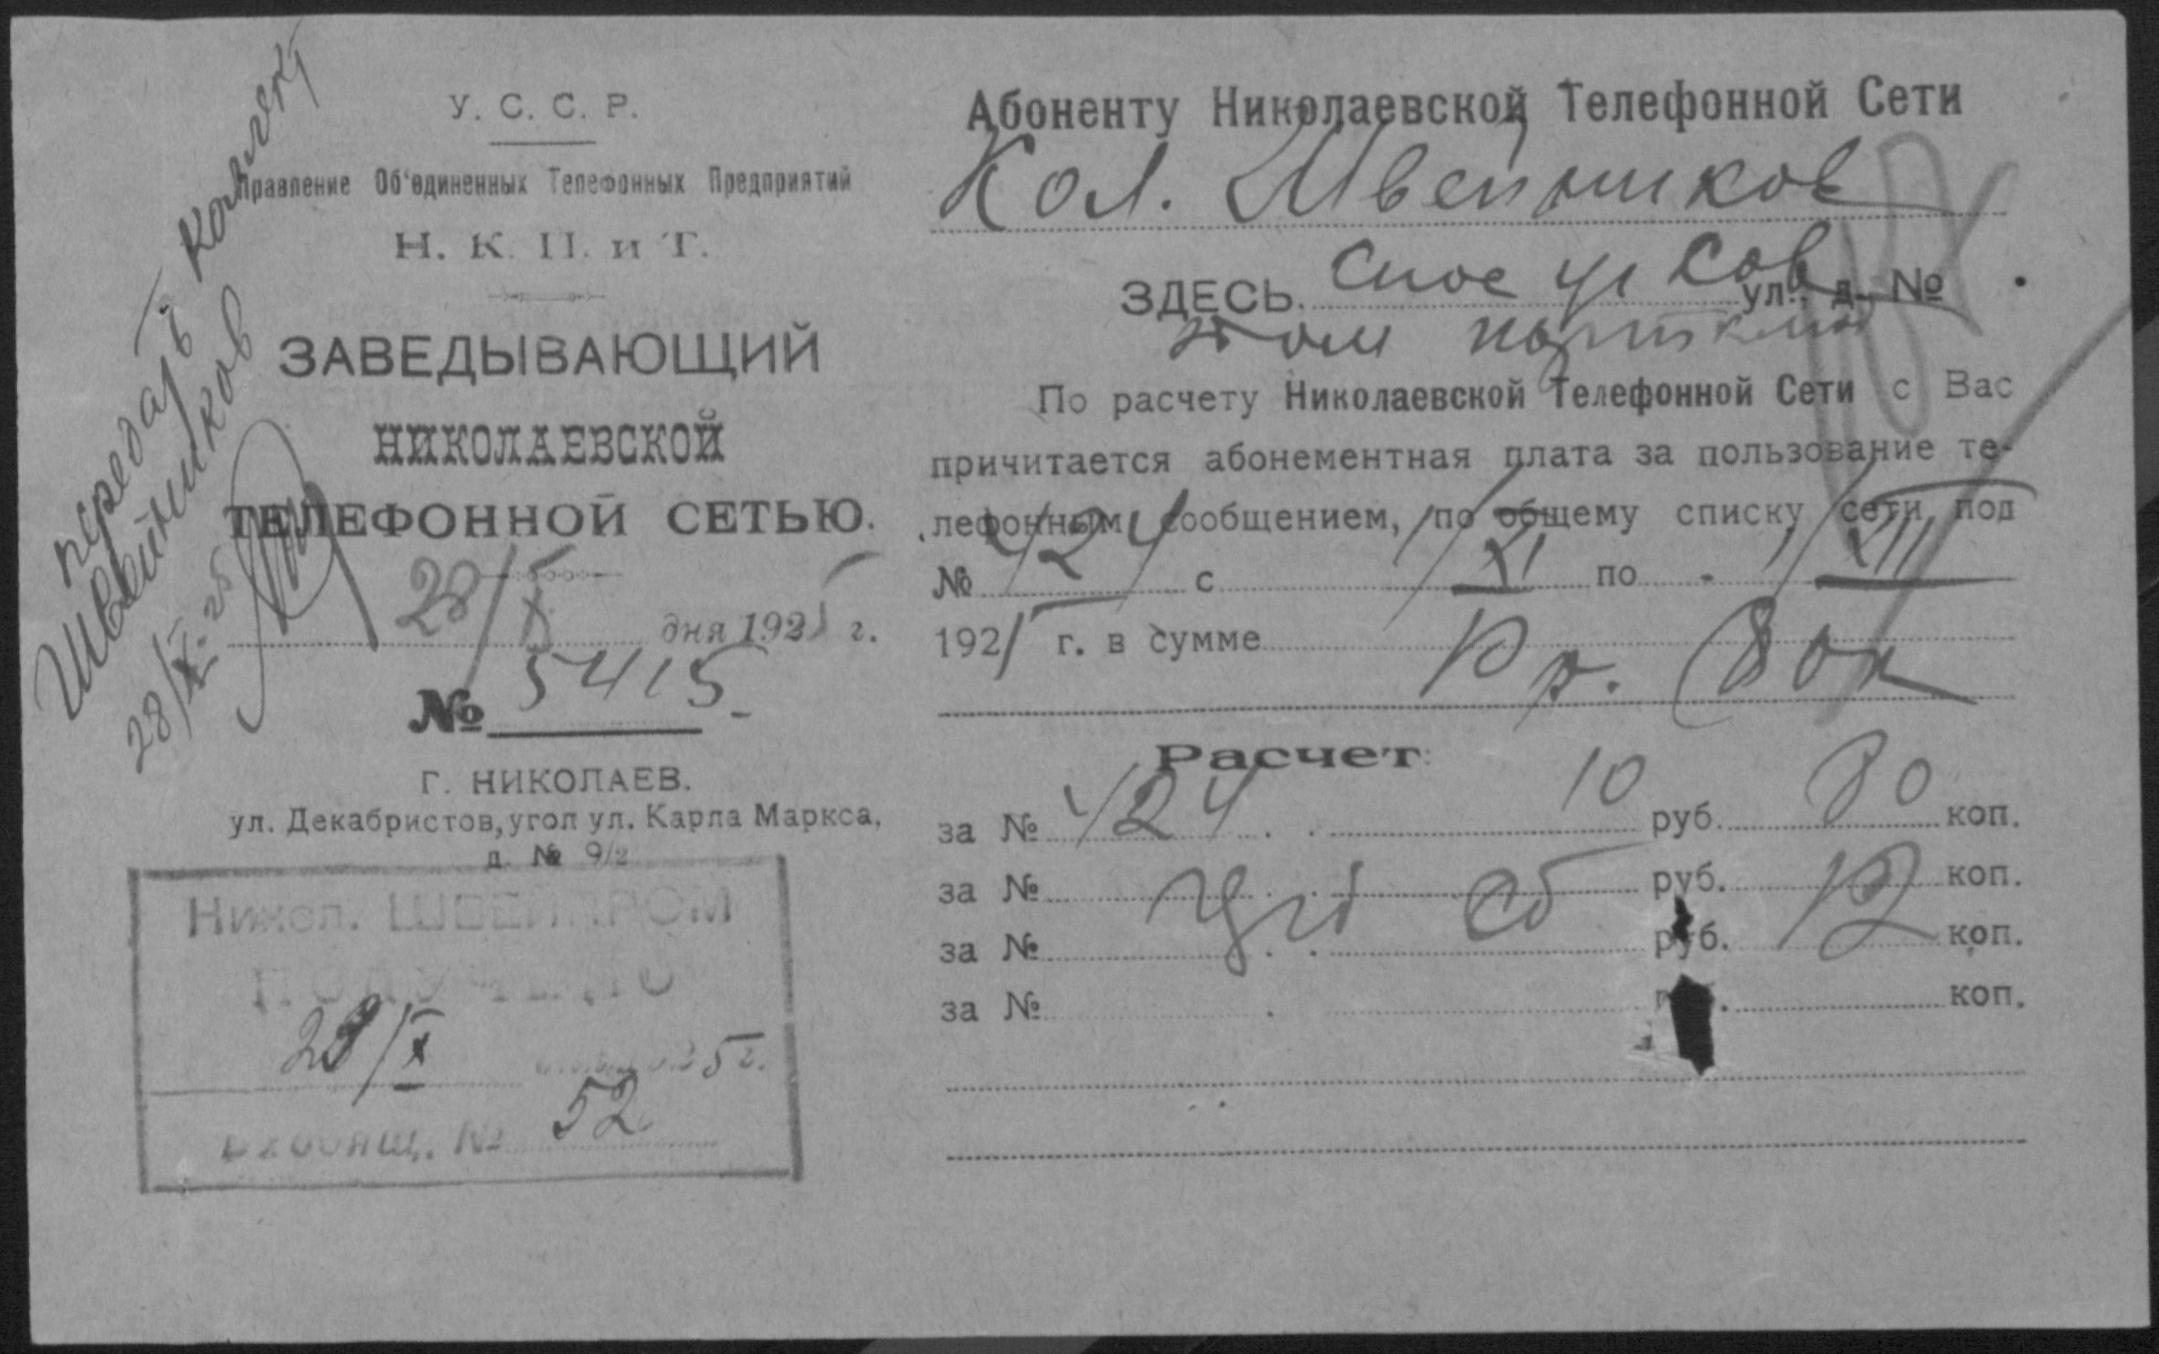 передать Коллект
Швейников
28/X-25
У. С. С. Р.
Правление Об'единенных Телефонных Предприятий
Н. К. П. и Т.
ЗАВЕДЫВАЮЩИЙ
НИКОЛАЕВСКОЙ
ТЕЛЕФОННОЙ СЕТЬЮ.
28/X дня 1925 г.
№ 5415
Г. НИКОЛАЕВ.
ул. Декабристов, угол ул. Карла Маркса,
д. № 9/2
Никол. ШВЕЙПРОМ
ПОЛУЧЕНО
29/X 25 г.
Входящ. № 52
Абоненту Николаевской Телефонной Сети
Кол. Швейников
ЗДЕСЬ. Спос ул Сов ул. д. №
По расчету Николаевской Телефонной Сети с Вас
причитается абонементная плата за пользование те-
лефонным сообщением, по общему списку сети под
№ 424 с 1/XI по 1/XII
1925 г. в сумме 10 р. 80 к
Расчет:
за № 424 10 руб. 80 коп.
за № руб. коп.
за № руб. коп.
за № коп.